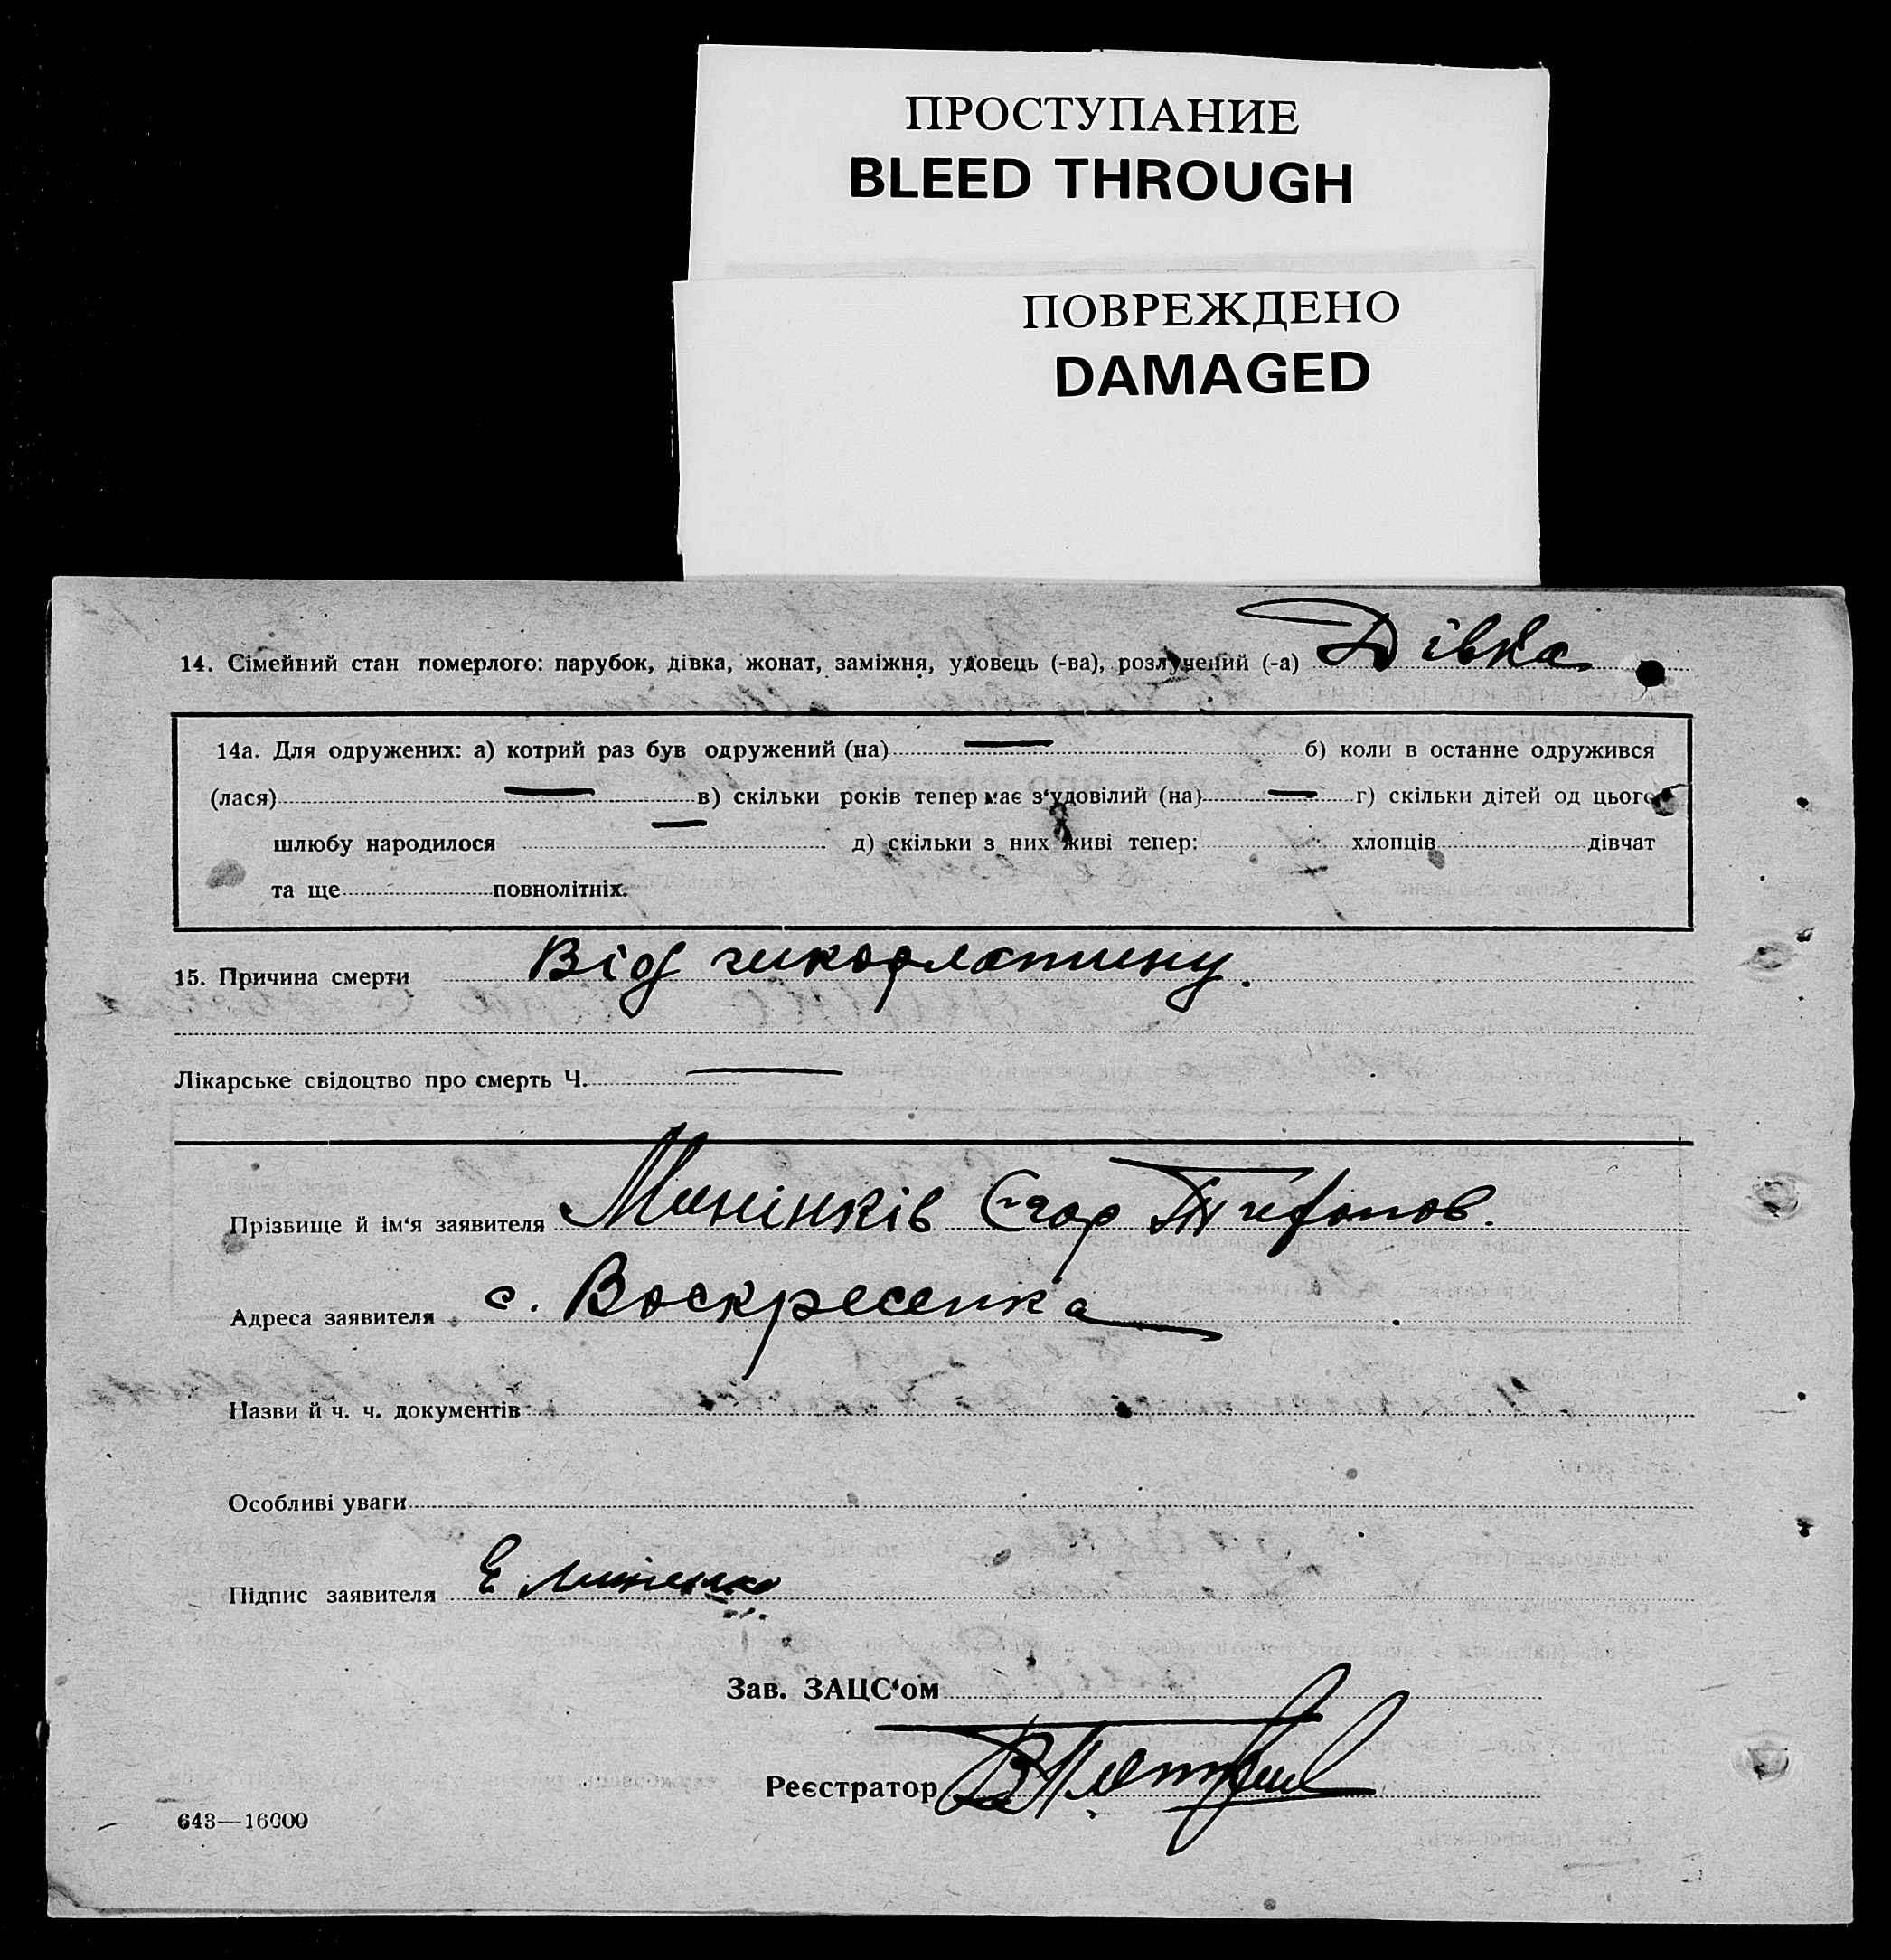 ПРОСТУПАНИЕ
BLEED THROUGH
ПОВРЕЖДЕНО
DAMAGED
14. Сімейний стан померлого: парубок, дівка, жонат, заміжня, удовець (-ва), розлучений (-а) Дівка
14а. Для одружених: а) котрий раз був одружений (на) — б) коли в останне одружився
(лася) — в) скільки років тепер має з‘удовілий (на) — г) скільки дітей од цього
шлюбу народилося — д) скільки з них живі тепер: хлопців дівчат
та ще повнолітніх.
15. Причина смерти Від
Лікарське свідоцтво про смерть Ч. —
Прізвище й ім‘я заявителя Єгор
Адреса заявителя с. Воскресенка
Назви й ч. ч. документів
Особливі уваги
Підпис заявителя Е
Зав. ЗАЦС‘ом
Реєстратор
643—16000